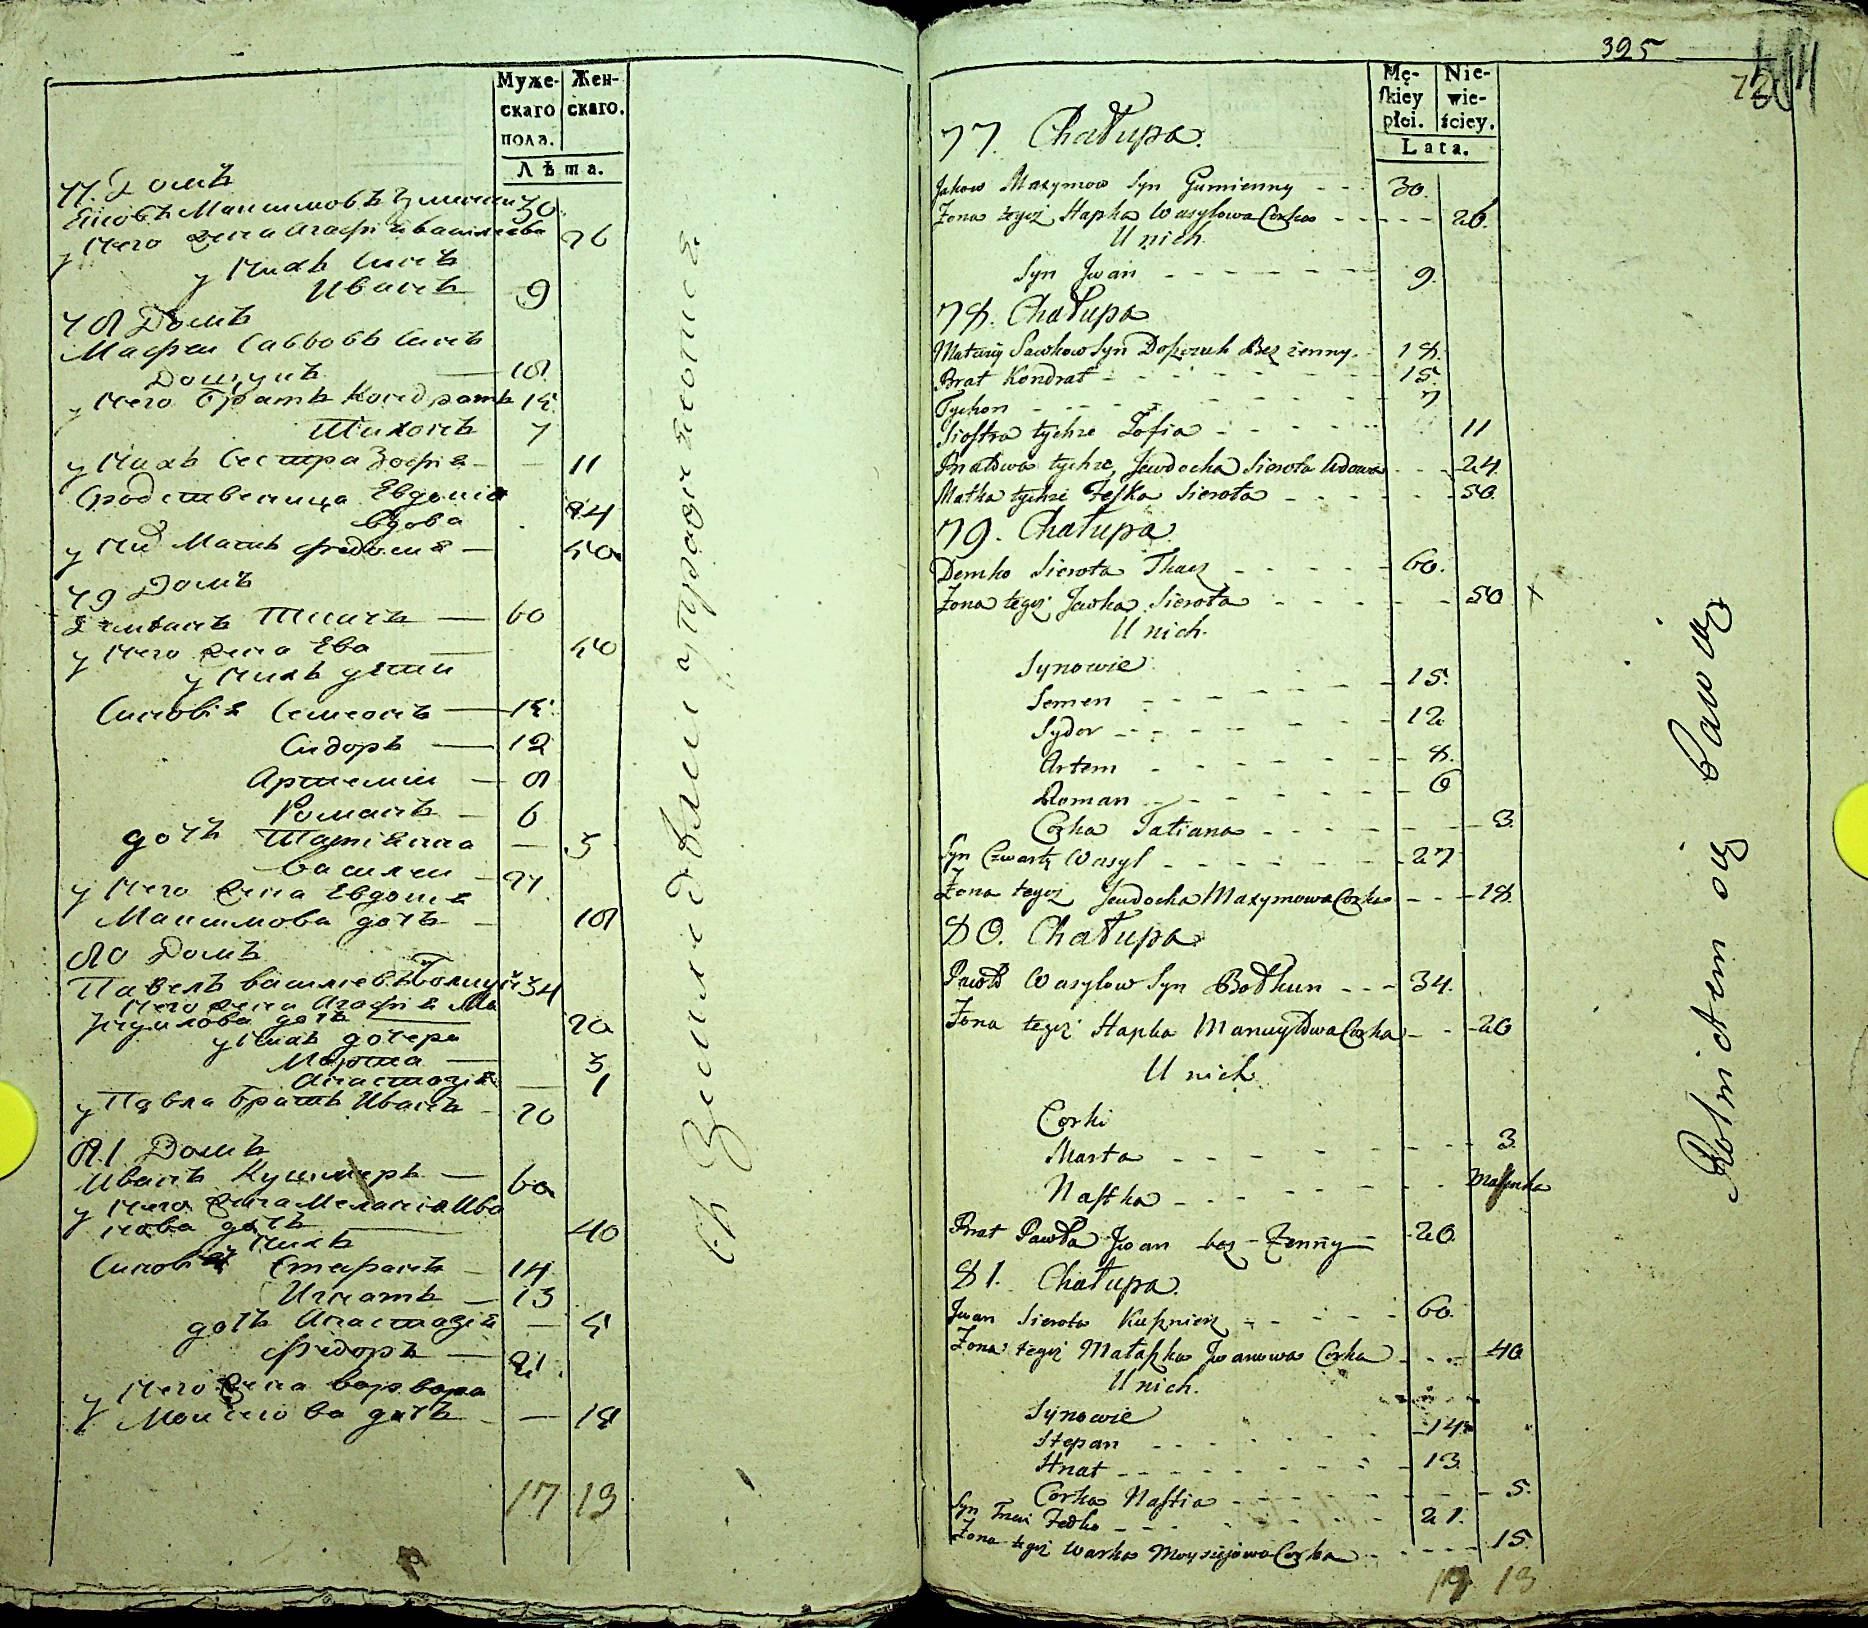 Муже-
скаго
пола.
Жен-
скаго.
Лѣта.
77. Домъ
Яковъ Максимовъ Гуменни 30
у Него жена Агафiя василиева 26
у Нихъ Синъ
Иванъ 9
78 Домъ
Мафеи Саввовъ Синъ
18
у Него братъ Кондратъ 15
Тихонъ 7
у Нихъ Сестра Зофiя — 11
Сродственица Евдокiя
вдова 24
у Них Мать Федосiя — 50
79 Домъ
Ткачъ — 60
у Него жена Ева 50
у Нихъ дѣти
Синовiя Семионъ — 15
Сидоръ — 12
Артемiи — 8
Романъ — 6
дочъ Татiянна — 3
василеи — 27
у Него жена Евдокiя
Максимова дочъ — 18
80 Домъ
Павелъ василиевъ 34
у Него жена Агафiя Ма
нуилова дочъ 20
у Нихъ дочери
Марта — 3
Анастазiя — 1
у Павла братъ Иванъ — 20
81 Домъ
Иванъ Кушнеръ — 60
у Него жена Меланiя Ива
нова дочъ 40
у Нихъ
Синовiя Стефанъ — 14
Игнатъ — 13
дочъ Анастазiя — 5
Федоръ — 21
у Него жена варвара
Моисиова дочъ — 15
17 13
Землидѣлiи упражняются
325
Mę-
skiey
płci.
Nie-
wie-
ściey.
Lata.
77. Chałupa.
Jakow Maxymow Syn Gumienny - - - 30.
Żona tegoż Hapka Wasylowa Corka - - - - - 26.
U nich
Syn Jwan - - - - - - 9.
78. Chałupa
Matwiy Sawkow Syn Doszczuk Bez żenny. - 18.
Brat Kondrat - - - - - - 15.
Tychon - - - - - - 7
Siostra tychże Zofia - - - - - 11
Bratowa tychże, Jewdocha Sierota Wdowa - - - 24.
Matka tychże Feska Sierota - - - - - - 50.
79. Chałupa
Demko Sierota Tkacz - - - - - 60.
Żona tegoż Jewka Sierota - - - - - 50
U nich.
Synowie
Semen - - - - - - 15.
Sydor - - - - - - 12
Artem - - - - - - 8.
Roman - - - - - - 6
Corka Tatiana - - - - - - 3.
Syn Czwarty Wasyl - - - - - - 27
Żona tegoż Jewdocha Maxymowa Corka - - - 18.
80. Chałupa
Paweł Wasylow Syn Bołkun - - - 34.
Żona tegoż Hapka Manuyłowa Corka - - - 20
U nich
Corki
Marta - - - - - - - 3.
Nastka - - - - - - Malenka
Brat Pawła Jwan bez Żenny - 20.
81. Chałupa.
Jwan Sierota Kusznierz - - - - - 60.
Żona tegoż Małaszka Jwanowa Corka - - - 40.
U nich.
Synowie
Stepan - - - - - - 14.
Hnat - - - - - - 13.
Corka Nastia - - - - - - 5.
Syn Trzeci Fedko - - - - - - 21.
Żona tegoż Warka Moysiejowa Corka - - - - - 15.
17 13
Rolnictwem się bawią